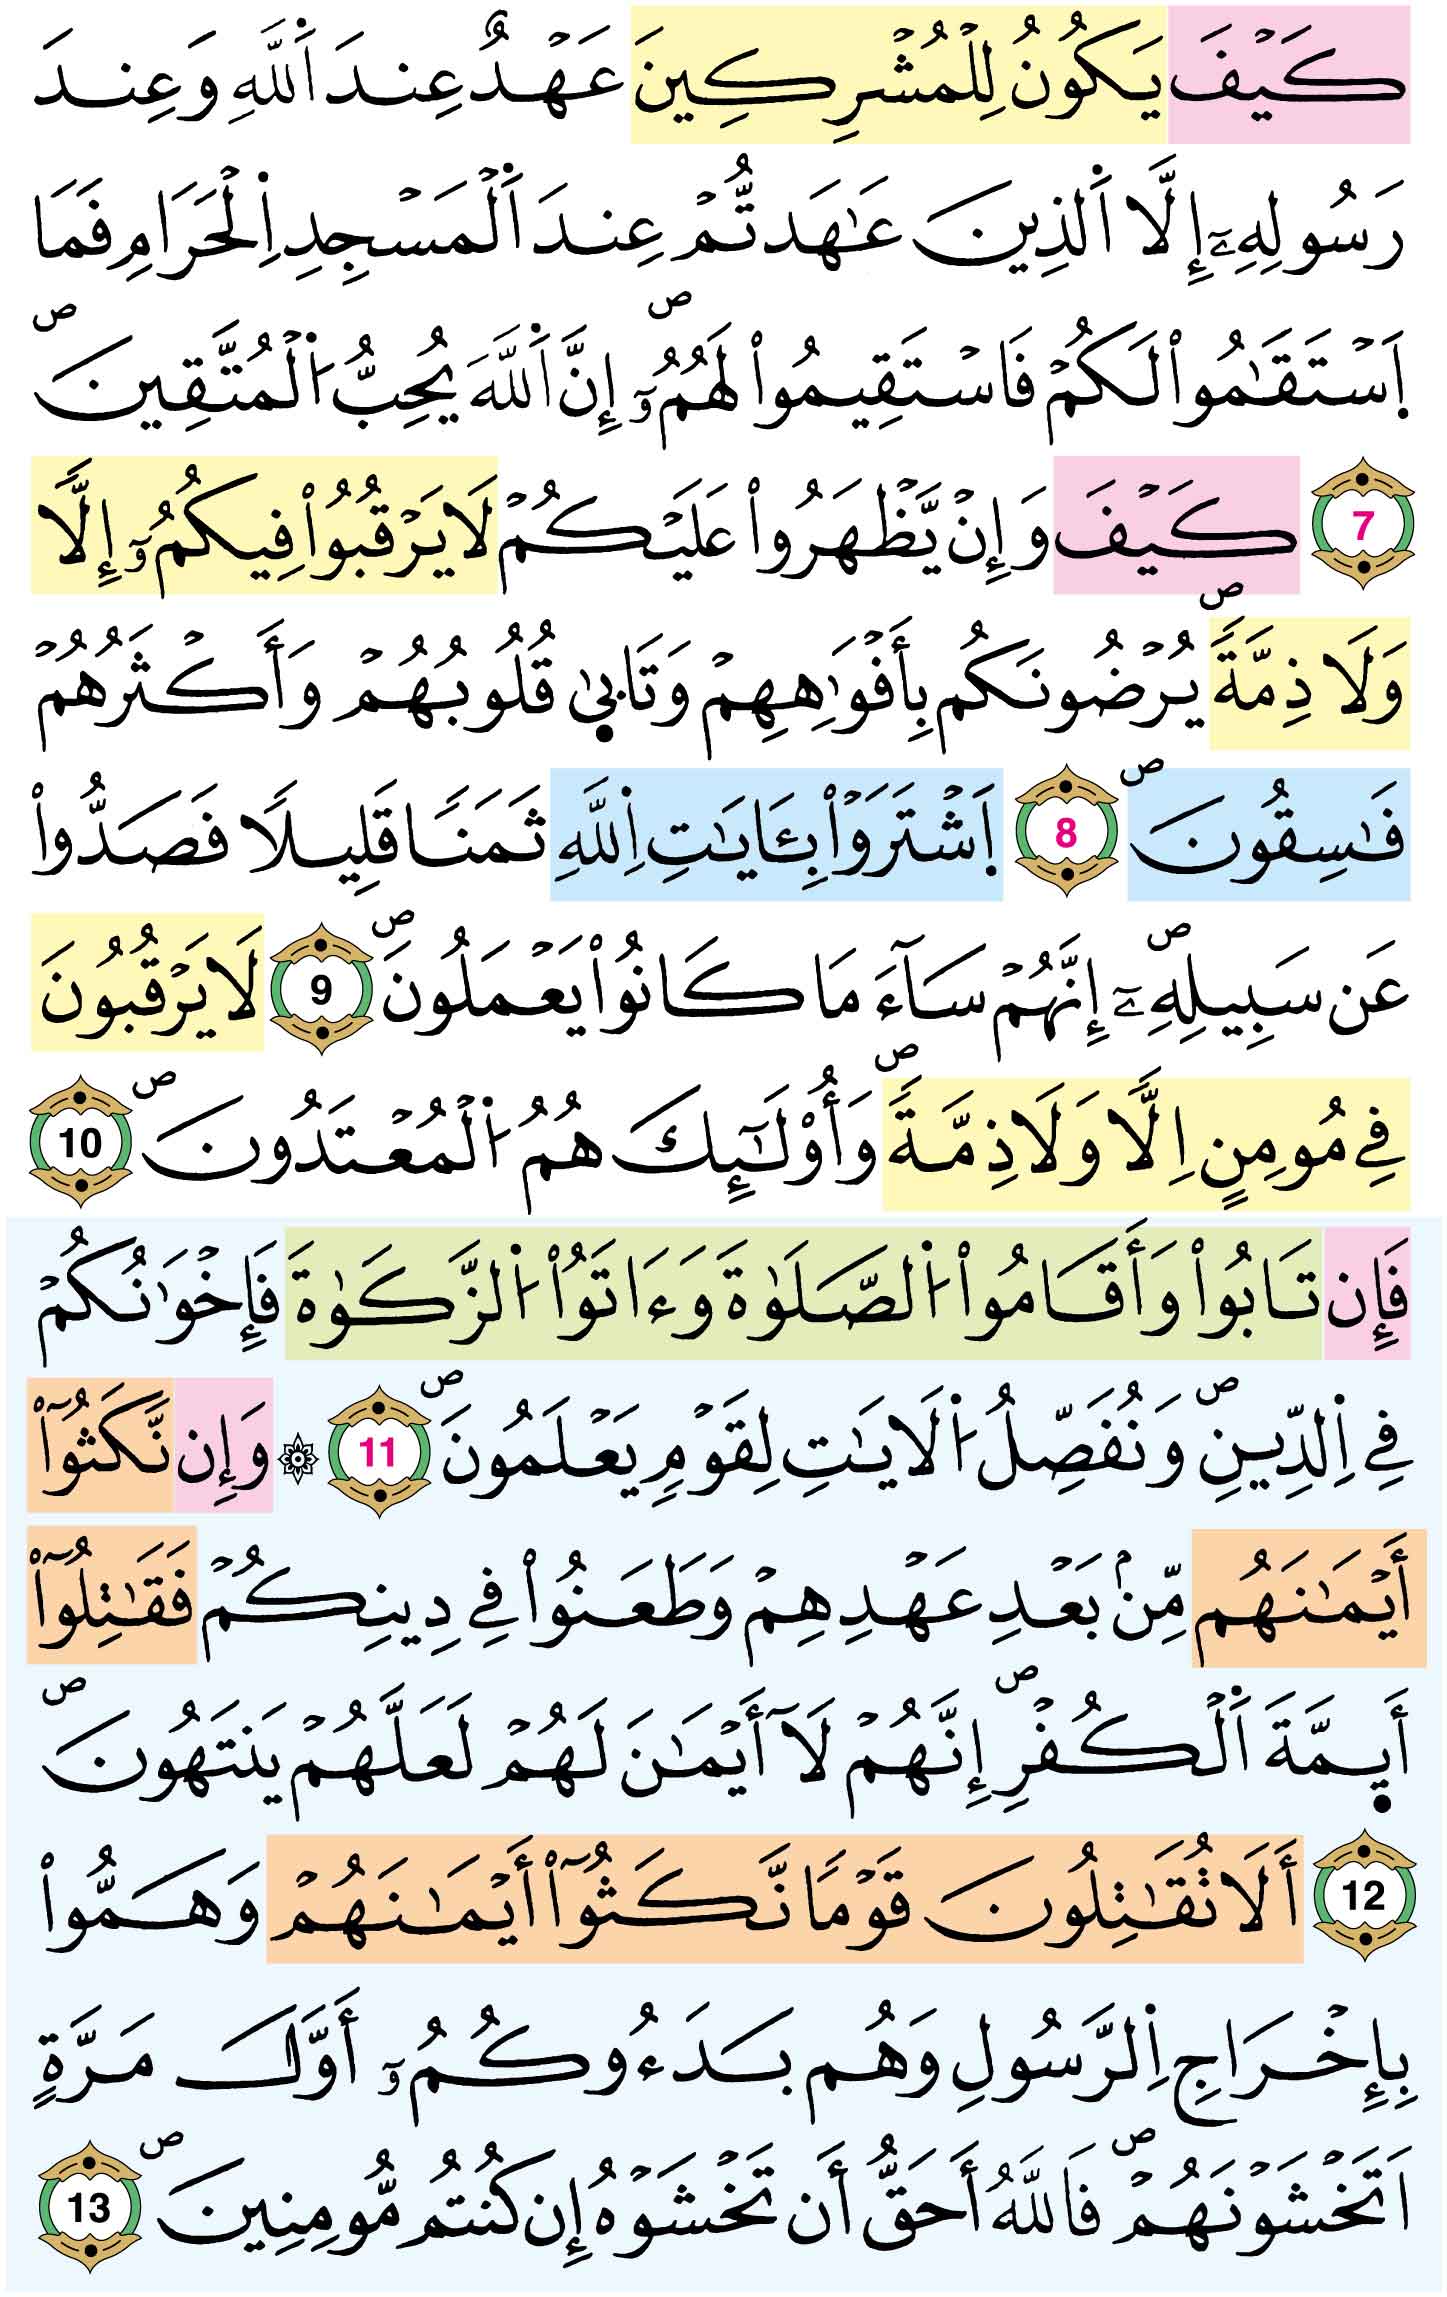 كَيْفَ يَكُونُ لِلْمُشْرِكِينَ عَهْدٌ عِندَ اَ۬للَّهِ وَعِندَ
رَسُولِهِۦٓ إِلَّا اَ۬لذِينَ عَٰهَدتُّمْ عِندَ اَ۬لْمَسْجِدِ اِ۬لْحَرَامِ فَمَا
اَ۪سْتَقَٰمُواْ لَكُمْ فَاسْتَقِيمُواْ لَهُمُۥٓۖ إِنَّ اَ۬للَّهَ يُحِبُّ اُ۬لْمُتَّقِينَۖ
7 كَيْفَ وَإِنْ يَّظْهَرُواْ عَلَيْكُمْ لَا يَرْقُبُواْ فِيكُمُۥٓ إِلّٗا
وَلَا ذِمَّةٗۖ يُرْضُونَكُم بِأَفْوَٰهِهِمْ وَتَأْب۪يٰ قُلُوبُهُمْ وَأَكْثَرُهُمْ
فَٰسِقُونَۖ 8 اَ۪شْتَرَوْاْ بِـَٔايَٰتِ اِ۬للَّهِ ثَمَناٗ قَلِيلاٗ فَصَدُّواْ
عَن سَبِيلِهِۦٓۖ إِنَّهُمْ سَآءَ مَا كَانُواْ يَعْمَلُونَۖ 9 لَا يَرْقُبُونَ
فِے مُومِنٍ اِلّٗا وَلَا ذِمَّةٗۖ وَأُوْلَٰٓئِكَ هُمُ اُ۬لْمُعْتَدُونَۖ 10
فَإِن تَابُواْ وَأَقَامُواْ اُ۬لصَّلَوٰةَ وَءَاتَوُاْ اُ۬لزَّكَوٰةَ فَإِخْوَٰنُكُمْ
فِے اِ۬لدِّينِۖ وَنُفَصِّلُ اُ۬لَايَٰتِ لِقَوْمٖ يَعْلَمُونَۖ 11 ۞ وَإِن نَّكَثُوٓاْ
أَيْمَٰنَهُم مِّنۢ بَعْدِ عَهْدِهِمْ وَطَعَنُواْ فِے دِينِكُمْ فَقَٰتِلُوٓاْ
أَي۪مَّةَ اَ۬لْكُفْرِۖ إِنَّهُمْ لَآ أَيْمَٰنَ لَهُمْ لَعَلَّهُمْ يَنتَهُونَۖ
12 أَلَا تُقَٰتِلُونَ قَوْماٗ نَّكَثُوٓاْ أَيْمَٰنَهُمْ وَهَمُّواْ
بِإِخْرَاجِ اِ۬لرَّسُولِ وَهُم بَدَءُوكُمُۥٓ أَوَّلَ مَرَّةٍ
اَتَخْشَوْنَهُمْۖ فَاللَّهُ أَحَقُّ أَن تَخْشَوْهُ إِن كُنتُم مُّومِنِينَۖ 13